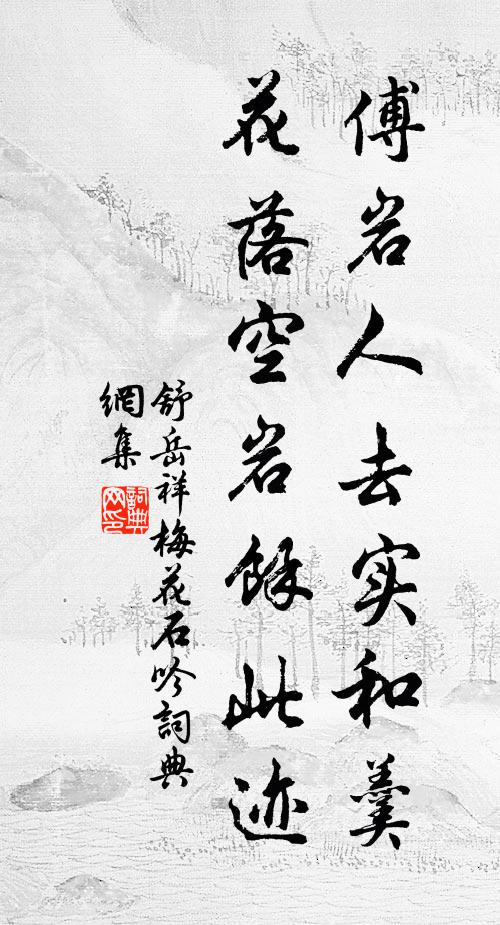 傅岩人去实和羹
花落空岩馀此迹
舒岳祥梅花石吟詞典
網集
詞典
网印